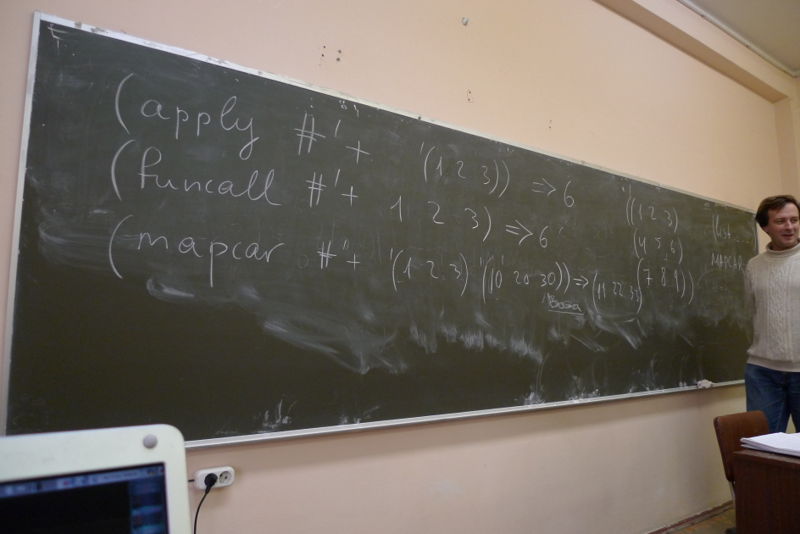 (apply #'+ '(1 2 3)) => 6
(funcall #'+ 1 2 3) => 6
(mapcar #'+ '(1 2 3) '(10 20 30)) => (11 22 33)
'((1 2 3)
(4 5 6)
(7 8 9))
(list
mapcar